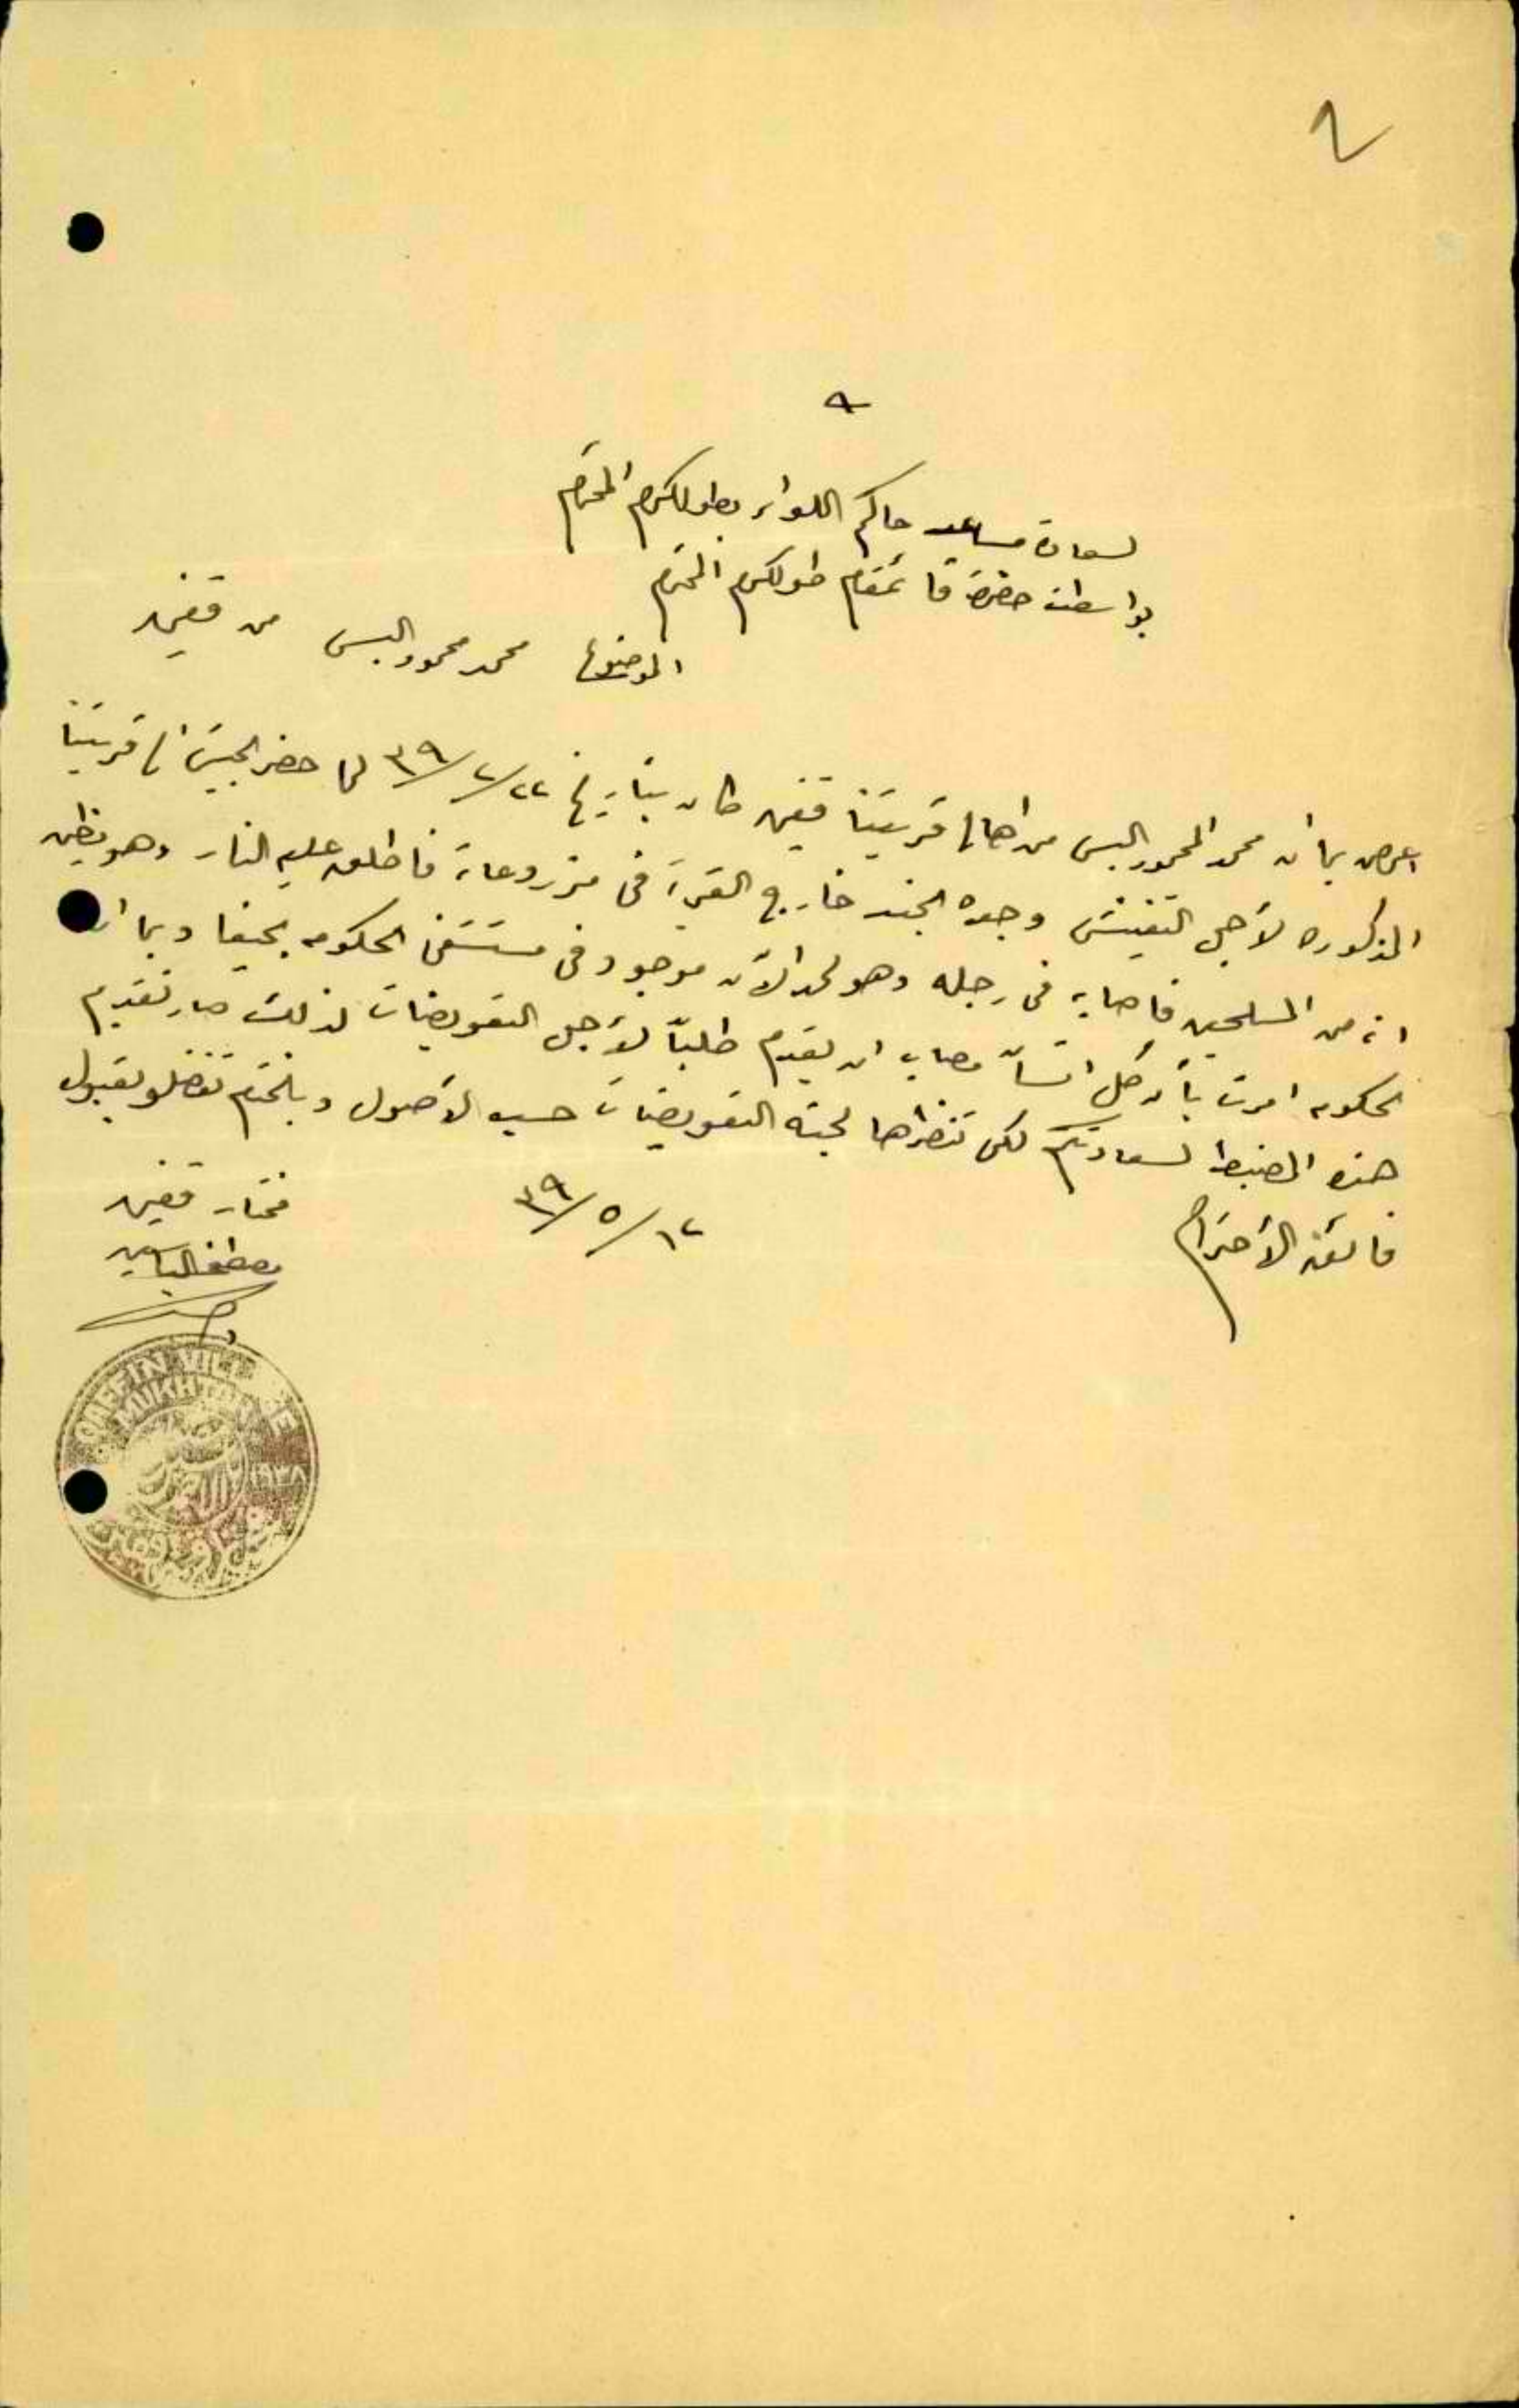 ٢
٩
لسعادة مساعد حاكم اللواء بطولكرم المحترم
بواسطة حضرة قائمقام طولكرم المحترم
الموضوع محمد محمود البس من قفين
اعرض بما ان محمد المحمود البس من اهالي قريتنا قفين كان بتاريخ ٢٢/٢/٣٩ لما حضر الجيش الى قريتنا
المذكوره لأجل التفتيش وجده الجند خارج القرية في مزروعاته فاطلق عليه النار وهو يظن
انه من المسلحين فاصابه في رجله وهو لحد الآن موجود في مستشفى الحكومه بحيفا وبما ان
الحكومه امرت بأن كل انسان مصاب ان يقدم طلباً لأجل التعويضات لذلك صار تقديم
هذه المضبطة لسعادتكم لكي تنظرها لجنة التعويضات حسب الأصول وبالختام تفضلو بقبول
فائق الأحترام
١٢/٥/٣٩
مختار قفين
مصطفى الياسين
QAFFIN VILLAGE
MUKHTAR
١٩٣٨